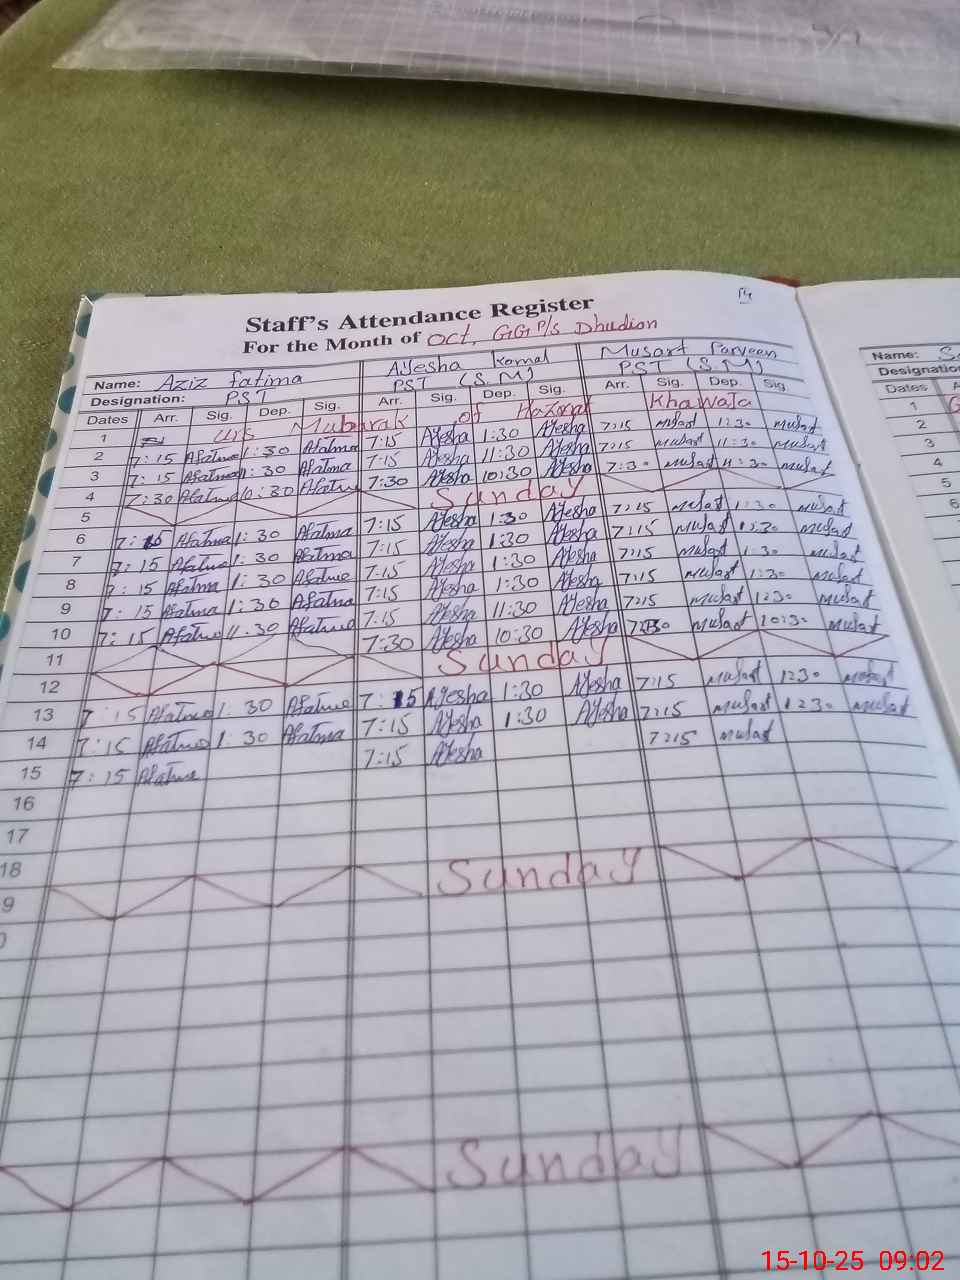 14
Staff's Attendance Register
For the Month of Oct, GG P/S Dhudian
Name: Aziz fatima Ayesha Komal Musart Parveen
Designation: PST PST (S.M) PST (S.M)
Dates Arr. Sig. Dep. Sig. Arr. Sig. Dep. Sig. Arr. Sig. Dep. Sig.
1 Urs Mubarak of Hazrat Khawaja
2 7:15 Afatma 1:30 Afatma 7:15 Ayesha 1:30 Ayesha 7:15 Musart 1:30 Musart
3 7:15 Afatma 11:30 Afatma 7:15 Ayesha 11:30 Ayesha 7:15 Musart 11:30 Musart
4 7:30 Afatma 10:30 Afatma 7:30 Ayesha 10:30 Ayesha 7:30 Musart Musart
5 Sunday
6 7:15 Afatma 1:30 Afatma 7:15 Ayesha 1:30 Ayesha 7:15 Musart 1:30 Musart
7 7:15 Afatma 1:30 Afatma 7:15 Ayesha 1:30 Ayesha 7:15 Musart 1:30 Musart
8 7:15 Afatma 1:30 Afatma 7:15 Ayesha 1:30 Ayesha 7:15 Musart 1:30 Musart
9 7:15 Afatma 1:30 Afatma 7:15 Ayesha 1:30 Ayesha 7:15 Musart 1:30 Musart
10 7:15 Afatma 11:30 Afatma 7:15 Ayesha 11:30 Ayesha 7:15 Musart Musart
11 7:30 Ayesha 10:30 Ayesha 7:30 Musart 10:30 Musart
12 Sunday
13 7:15 Afatma 1:30 Afatma 7:15 Ayesha 1:30 Ayesha 7:15 Musart 1:30 Musart
14 7:15 Afatma 1:30 Afatma 7:15 Ayesha 1:30 Ayesha 7:15 Musart 1:30 Musart
15 7:15 Afatma 7:15 Ayesha 7:15 Musart
16
17
18
9 Sunday
Sunday
Name:
Designation
Dates
1
2
3
4
5
6
15-10-25 09:02